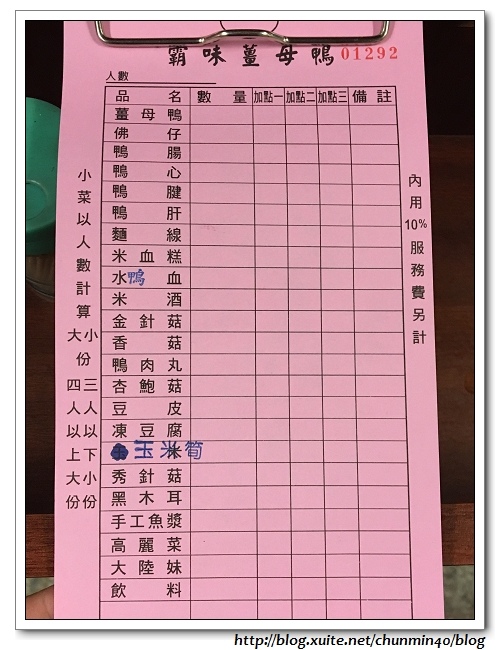 霸味薑母鴨 01292
人數
品名 數量 加點一 加點二 加點三 備註
薑母鴨
佛仔
鴨腸
鴨心
鴨腱
鴨肝
麵線
米血糕
水鴨血
米酒
金針菇
香菇
鴨肉丸
杏鮑菇
豆皮
凍豆腐
玉米筍
秀針菇
黑木耳
手工魚漿
高麗菜
大陸妹
飲料
小菜以人數計算
大份 四人以上大份
小份 三人以下小份
內用10%服務費另計
http://blog.xuite.net/chunmin40/blog